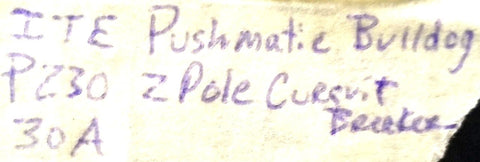 ITE Pushmatic Bulldog
P230 2 Pole Cursuit
30A Breaker